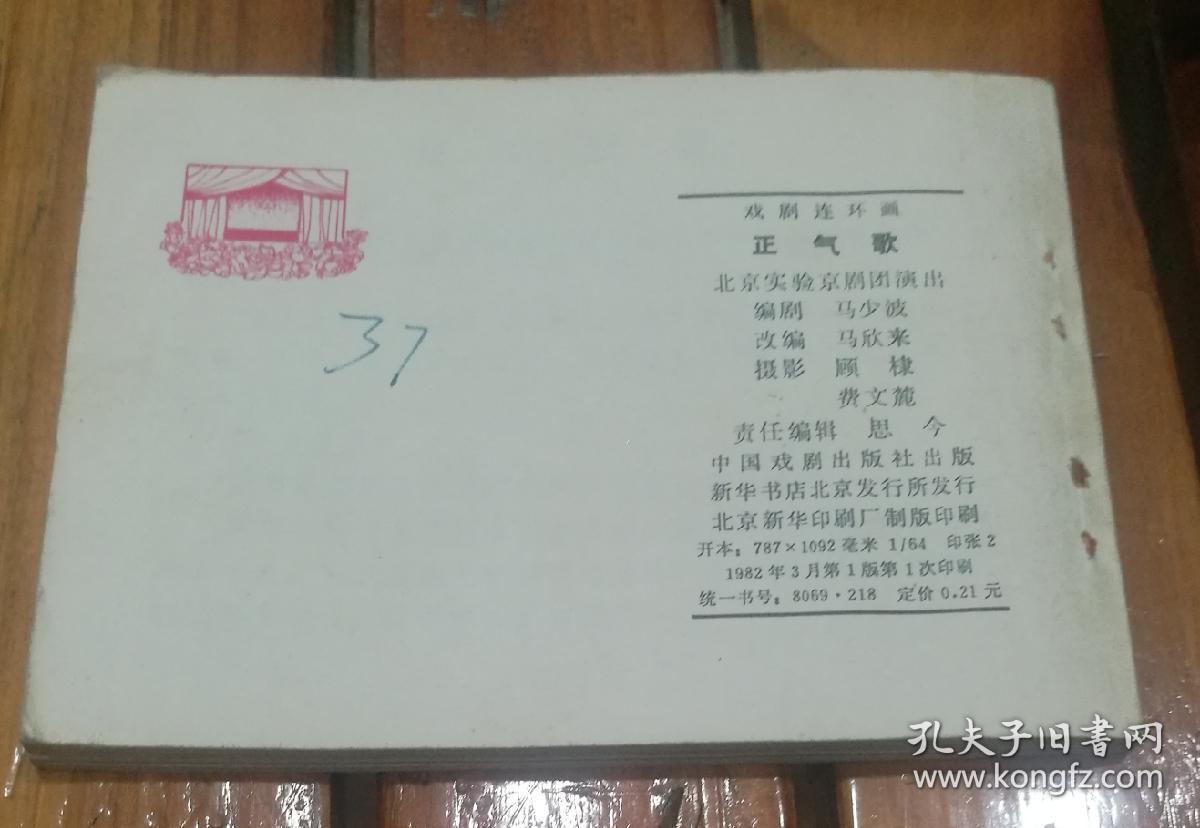 37
戏剧连环画
正气歌
北京实验京剧团演出
编剧 马少波
改编 马欣来
摄影 顾棣
费文麓
责任编辑 思今
中国戏剧出版社出版
新华书店北京发行所发行
北京新华印刷厂制版印刷
开本：787×1092毫米 1/64 印张2
1982年3月第1版第1次印刷
统一书号：8069·218 定价0.21元
孔夫子旧书网
www.kongfz.com